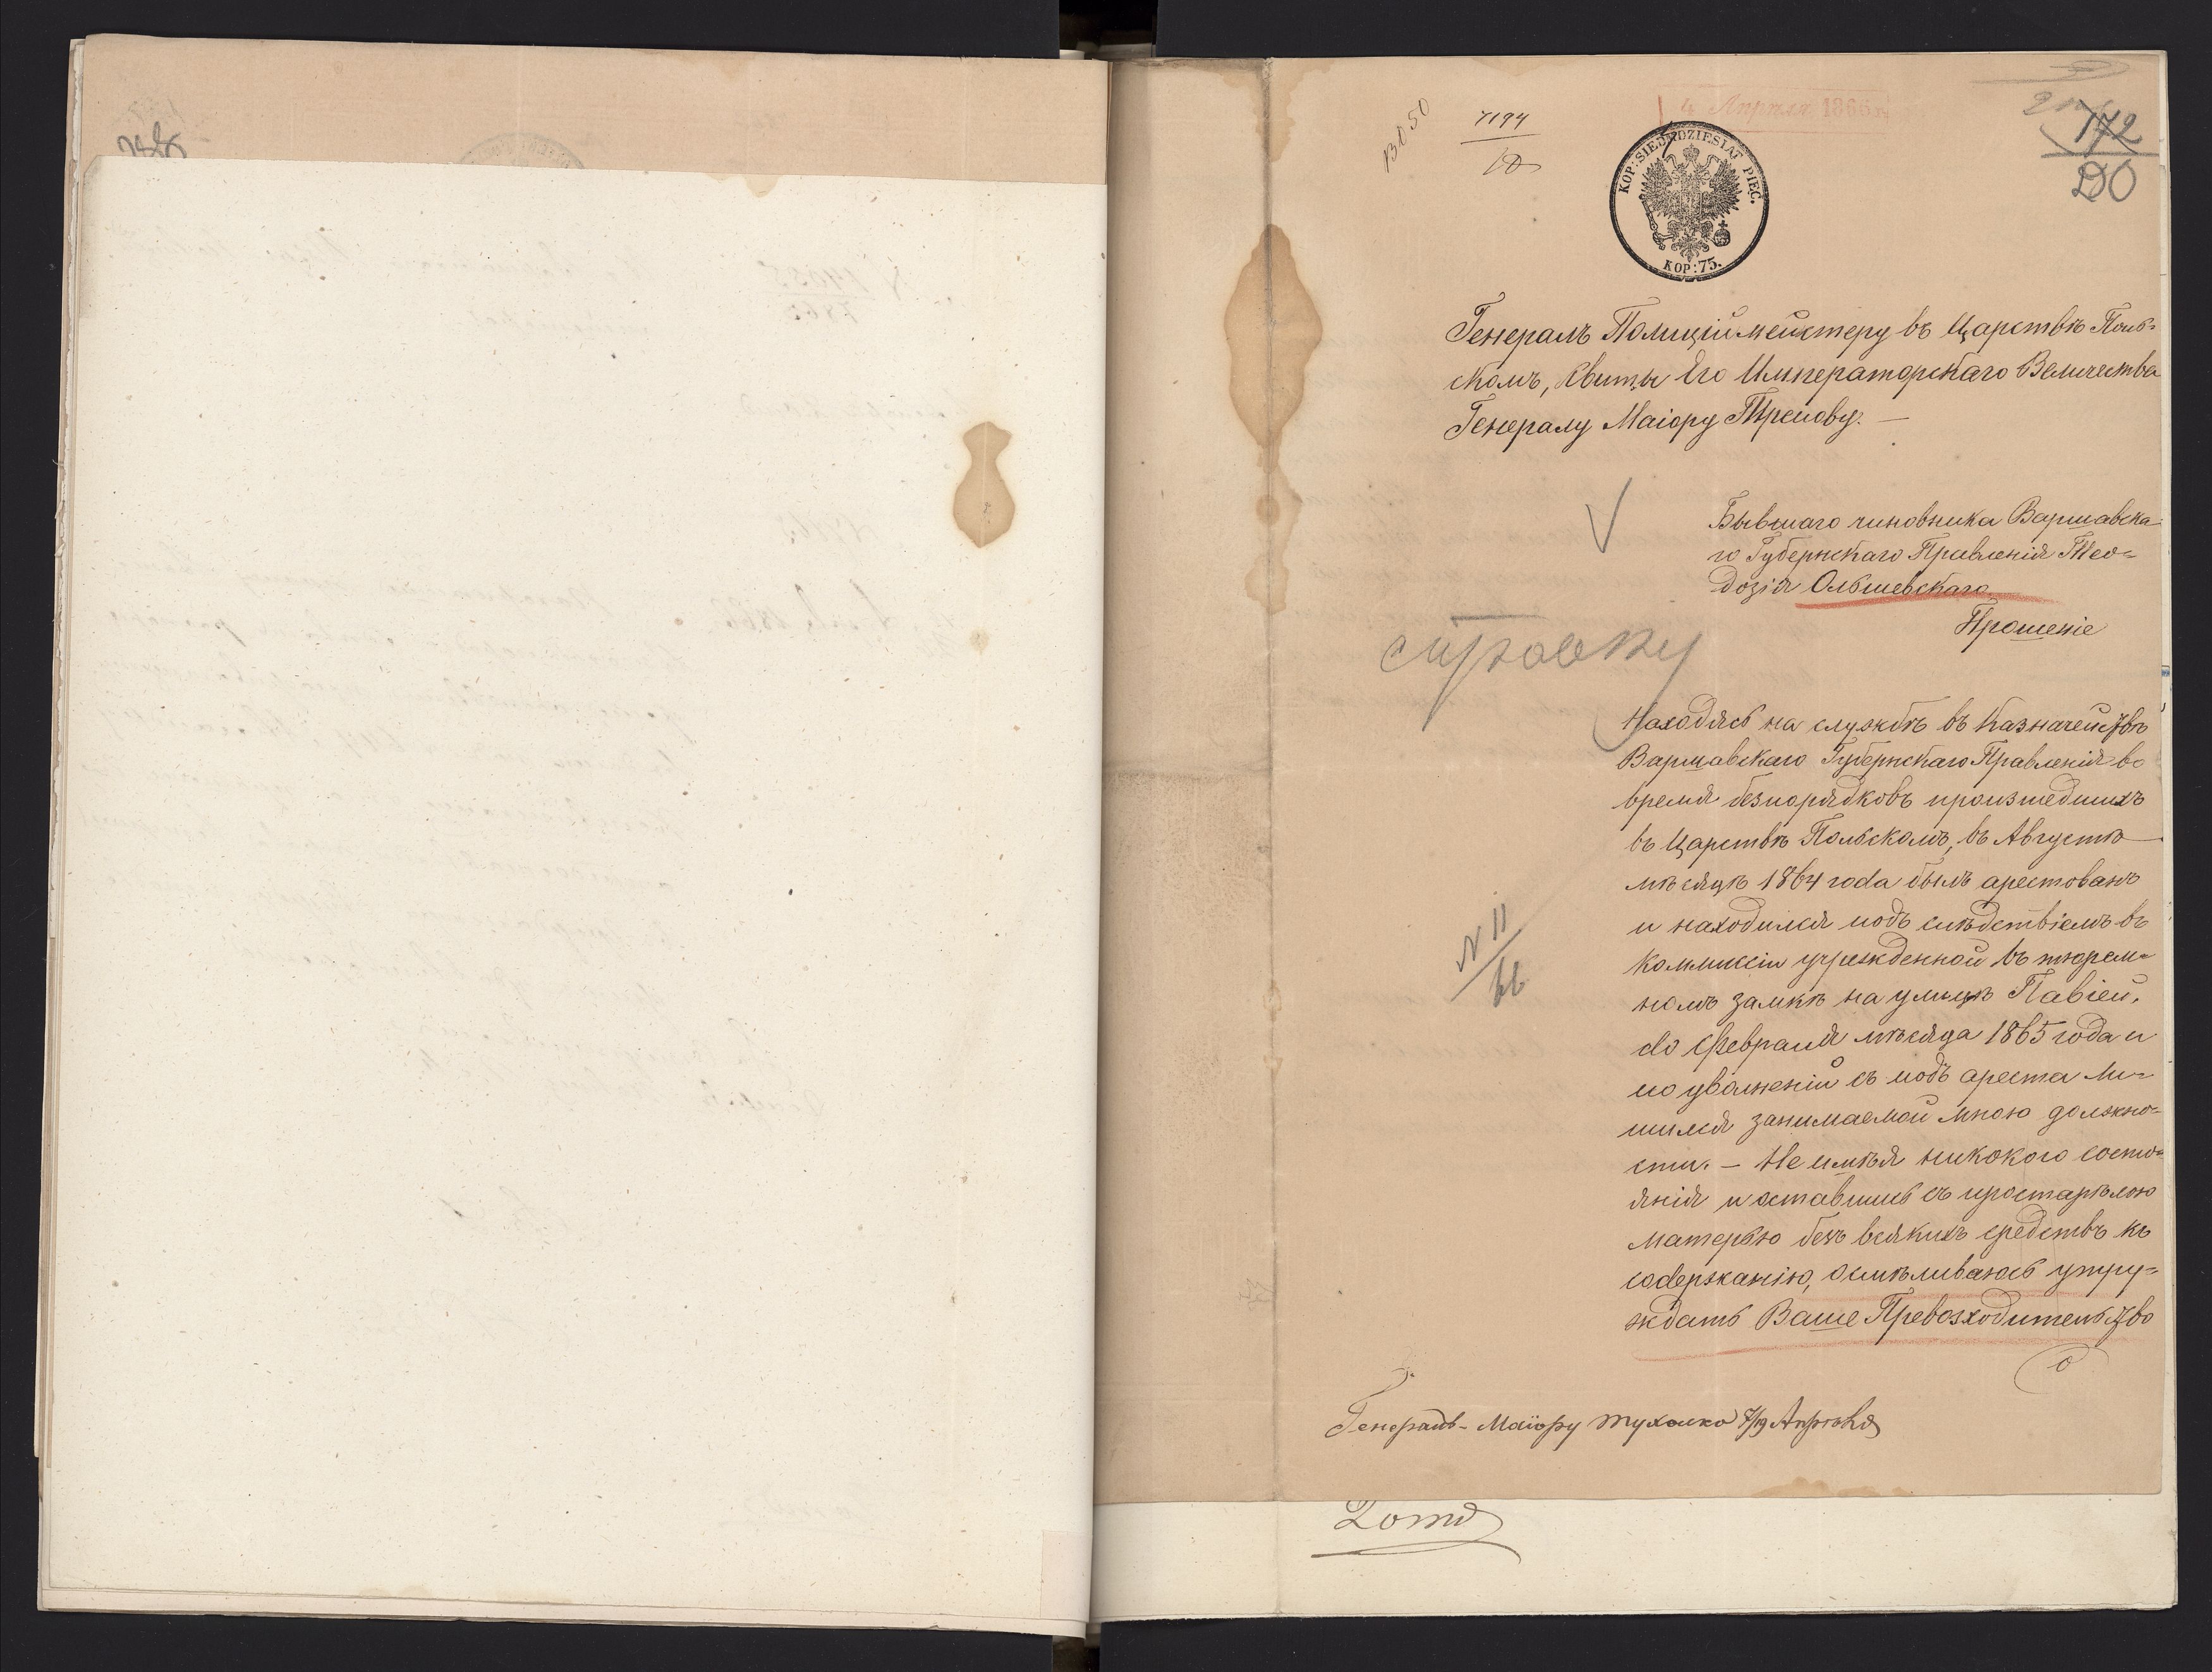 4 Апрѣля 1866 г.
13850
7194
172
20
KOP: SIEDMDZIESIĄT PIĘC.
KOP: 75.
Генералъ Полиціймейстеру въ Царствѣ Поль-
скомъ, Свиты Его Императорскаго Величества
Генералу Маіору Трепову. —
Бывшаго чиновника Варшавска-
го Губернскаго Правленія Тео-
дозія Ольшевскаго
Прошеніе
справку
Находясь на службѣ въ Казначействѣ
Варшавскаго Губернскаго Правленія во
время безпорядковъ произшедшихъ
въ Царствѣ Польскомъ, въ Августѣ
мѣсяцѣ 1864 года былъ арестованъ
и находился подъ слѣдствіемъ въ
Коммисіи учрежденной въ тюрем-
номъ замкѣ на улицѣ Павіей,
до Февраля мѣсяца 1865 года и
по увольненіи съ подъ ареста ли-
шился занимаемой мною должно-
сти. — Не имѣя никокого состо-
янія и оставшись съ престарѣлою
матерью безъ всякихъ средствъ къ
содержанію, осмѣливаюсь утру-
ждать Ваше Превозходительство
N 11
66
Генералъ-Маіору Тухолко 7/19 Апрѣля